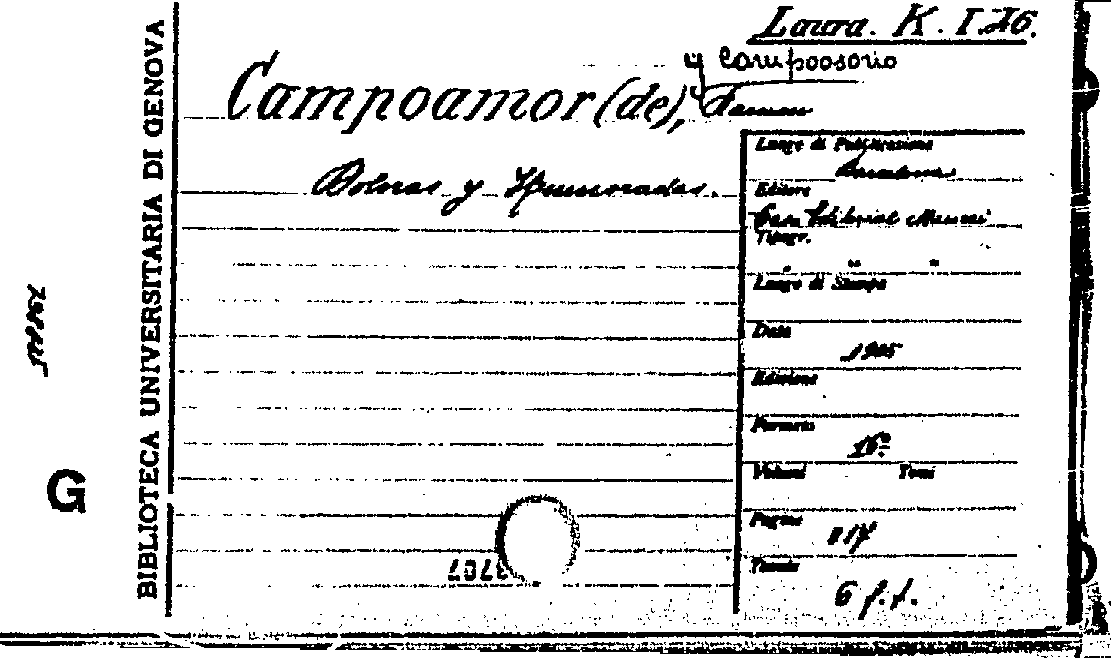 Laura. K. I. 26.
y Campoosorio
Campoamor (de), Ramon
Doloras y Humoradas.
Luogo di Pubblicazione
Barcelona
Editore
Casa Editorial Maucci
Tipogr.
" " "
Luogo di Stampa
Data
1905
Edizione
Formato
16º
Volumi Tomi
Pagine
217
Tavole
6 f. t.
BIBLIOTECA UNIVERSITARIA DI GENOVA
G